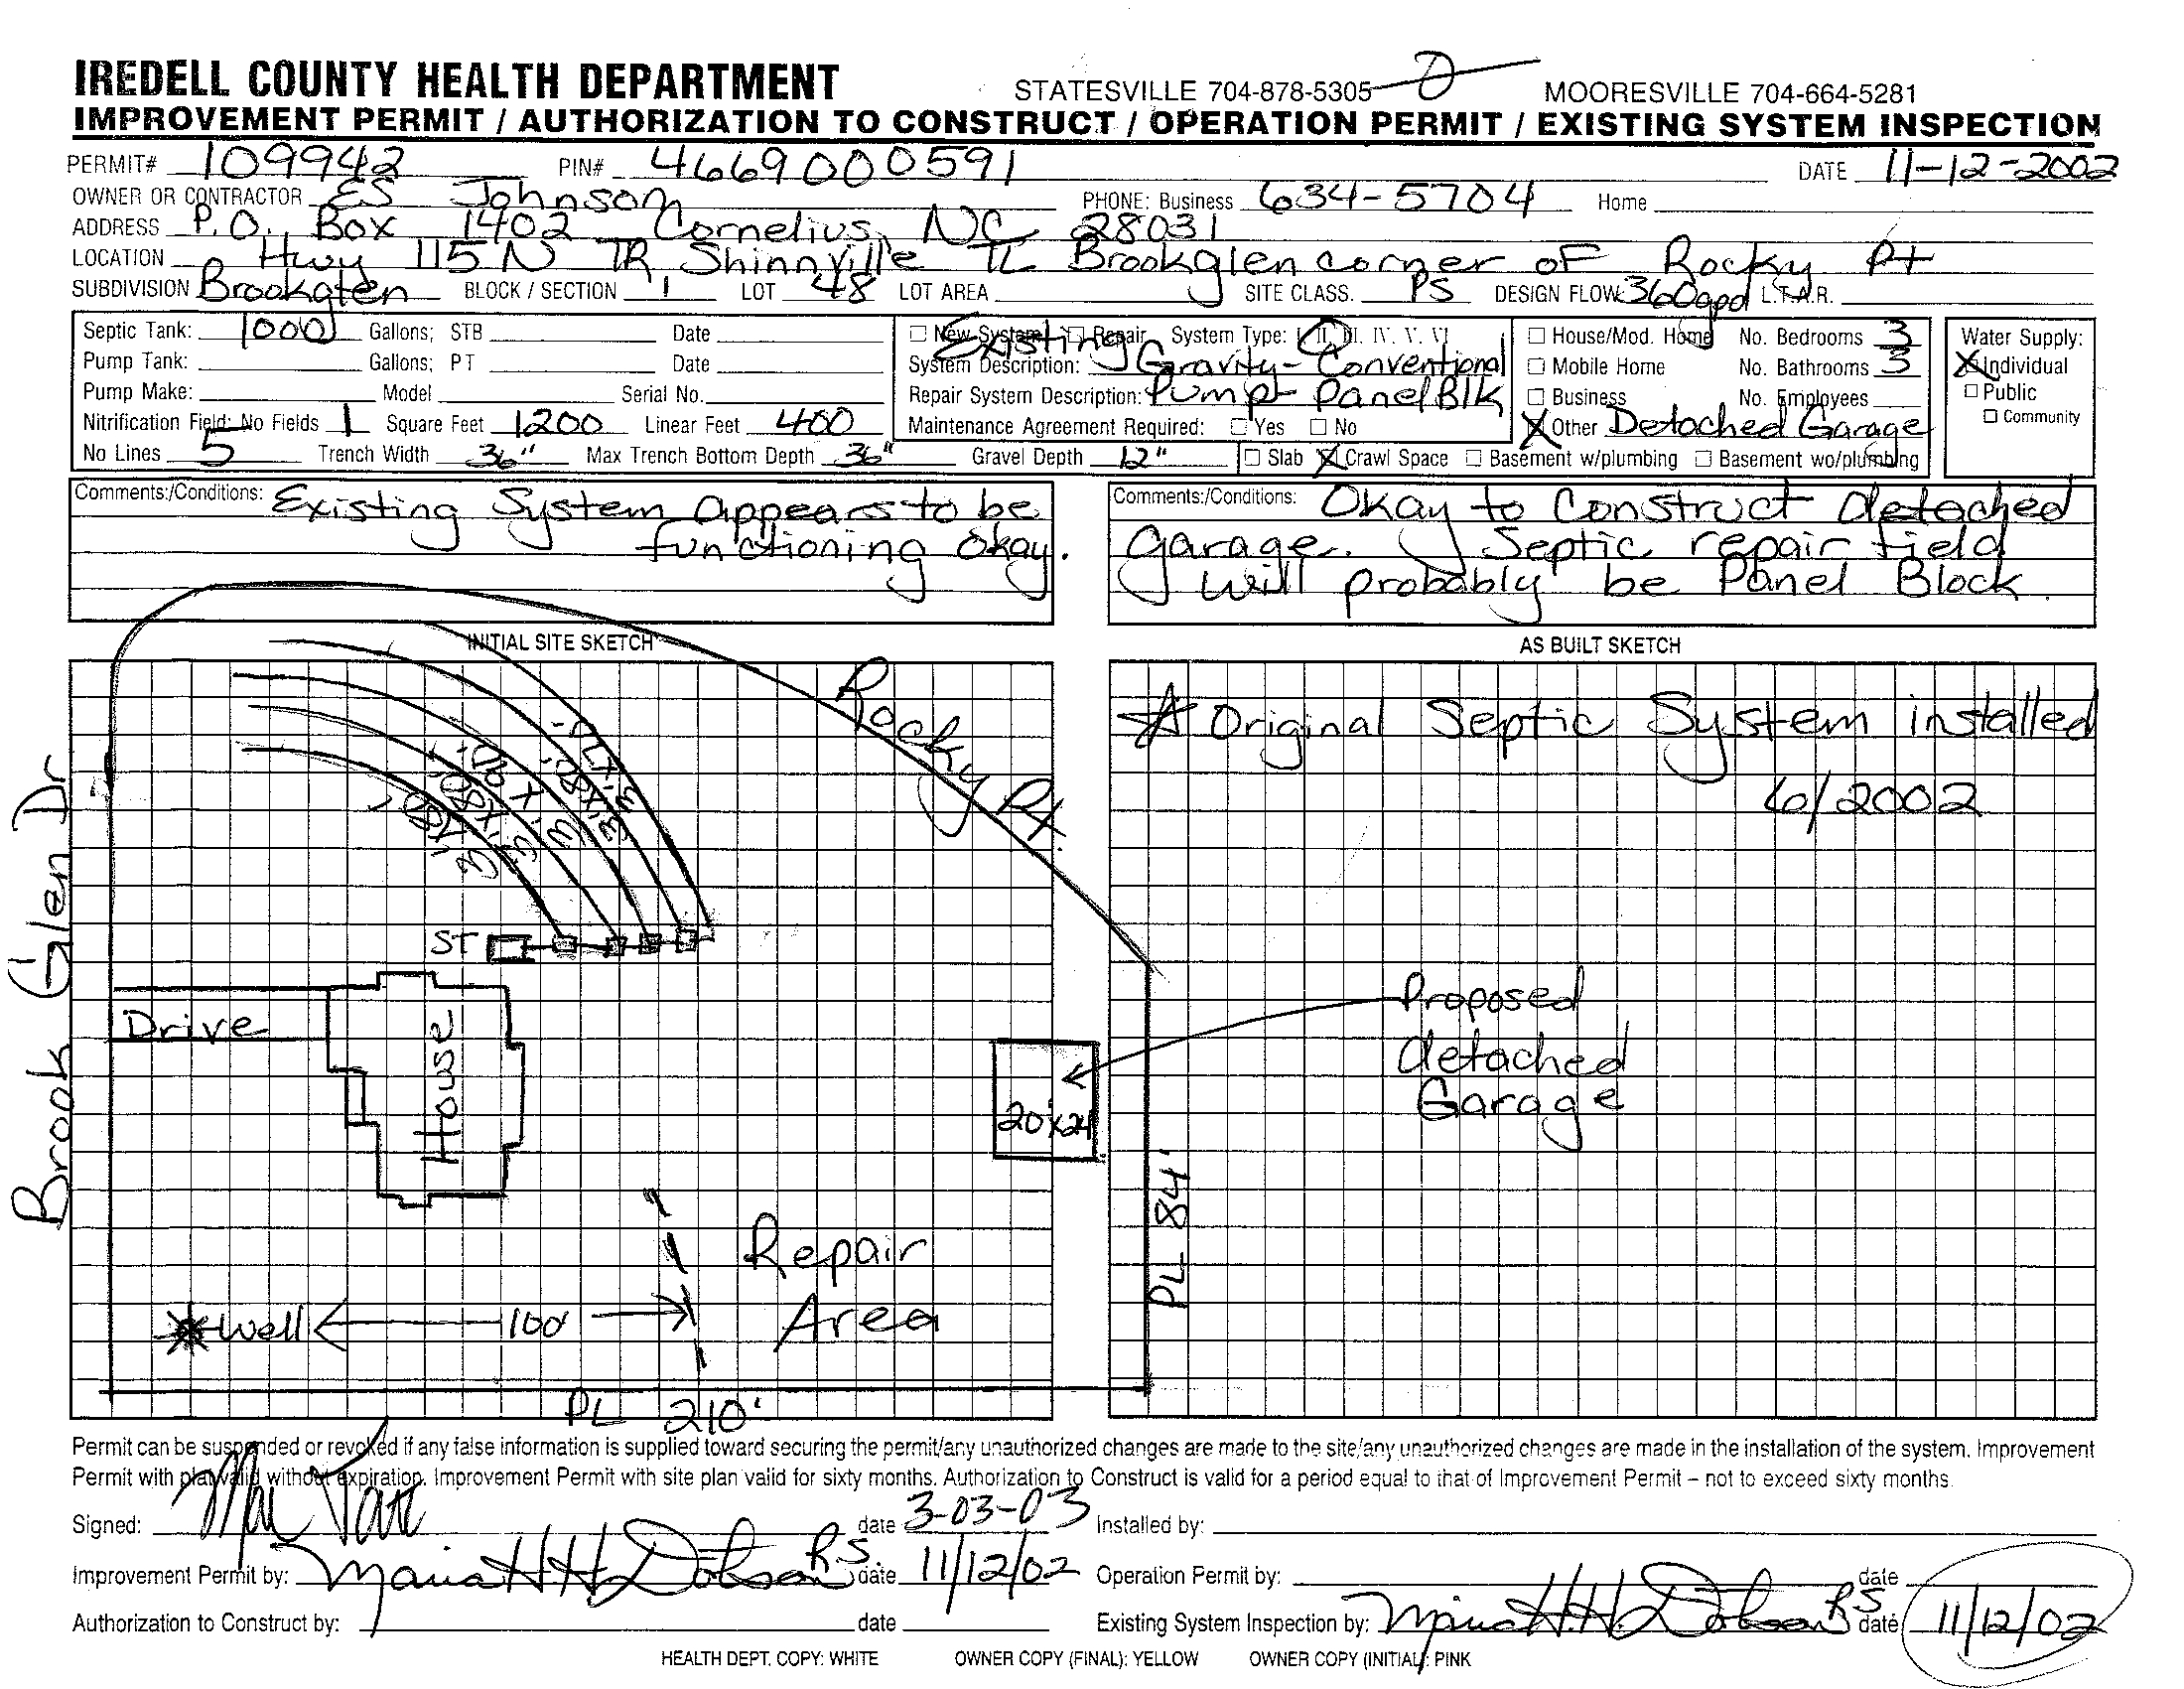 IREDELL COUNTY HEALTH DEPARTMENT STATESVILLE 704-878-5305 MOORESVILLE 704-664-5281
IMPROVEMENT PERMIT / AUTHORIZATION TO CONSTRUCT / OPERATION PERMIT / EXISTING SYSTEM INSPECTION
PERMIT# 109942 PIN# 4669000591 DATE 11-12-2002
OWNER OR CONTRACTOR ES Johnson PHONE: Business 634-5704 Home
ADDRESS P.O. Box 1402 Cornelius, NC 28031
LOCATION Hwy 115 N TR Shinnville TL Brookglen corner of Rocky Pt
SUBDIVISION Brookglen BLOCK / SECTION 1 LOT 48 LOT AREA SITE CLASS. PS DESIGN FLOW 360gpd L.T.A.R.
Septic Tank: 1000 Gallons; STB Date
Pump Tank: Gallons; PT Date
Pump Make: Model Serial No.
Nitrification Field: No Fields 1 Square Feet 1200 Linear Feet 400
No Lines 5 Trench Width 36" Max Trench Bottom Depth 36" Gravel Depth 12"
New System Existing Repair System Type: I. II. III. IV. V. VI
System Description: Gravity-Conventional
Repair System Description: Pump Panel Blk
Maintenance Agreement Required: Yes No
House/Mod. Home No. Bedrooms 3
Mobile Home No. Bathrooms 3
Business No. Employees
X Other Detached Garage
Slab X Crawl Space Basement w/plumbing Basement wo/plumbing
Water Supply:
X Individual
Public
Community
Comments:/Conditions: Existing System appears to be
functioning okay.
Comments:/Conditions: Okay to Construct detached
garage. Septic repair field
will probably be Panel Block.
INITIAL SITE SKETCH
AS BUILT SKETCH
Rocky Pt.
Original Septic System installed
6/2002
Brook Glen Dr
ST
Drive
House
20'x24'
Proposed
detached
Garage
PL 84'
Repair
Area
Well 100'
PL 210'
Permit can be suspended or revoked if any false information is supplied toward securing the permit/any unauthorized changes are made to the site/any unauthorized changes are made in the installation of the system. Improvement
Permit with plat valid without expiration. Improvement Permit with site plan valid for sixty months. Authorization to Construct is valid for a period equal to that of Improvement Permit – not to exceed sixty months.
Signed: date 3-03-03 Installed by:
Improvement Permit by: Maria H.H. Dobson RS date 11/12/02 Operation Permit by: date
Authorization to Construct by: date Existing System Inspection by: Maria H.H. Dobson RS date 11/12/02
HEALTH DEPT. COPY: WHITE OWNER COPY (FINAL): YELLOW OWNER COPY (INITIAL): PINK